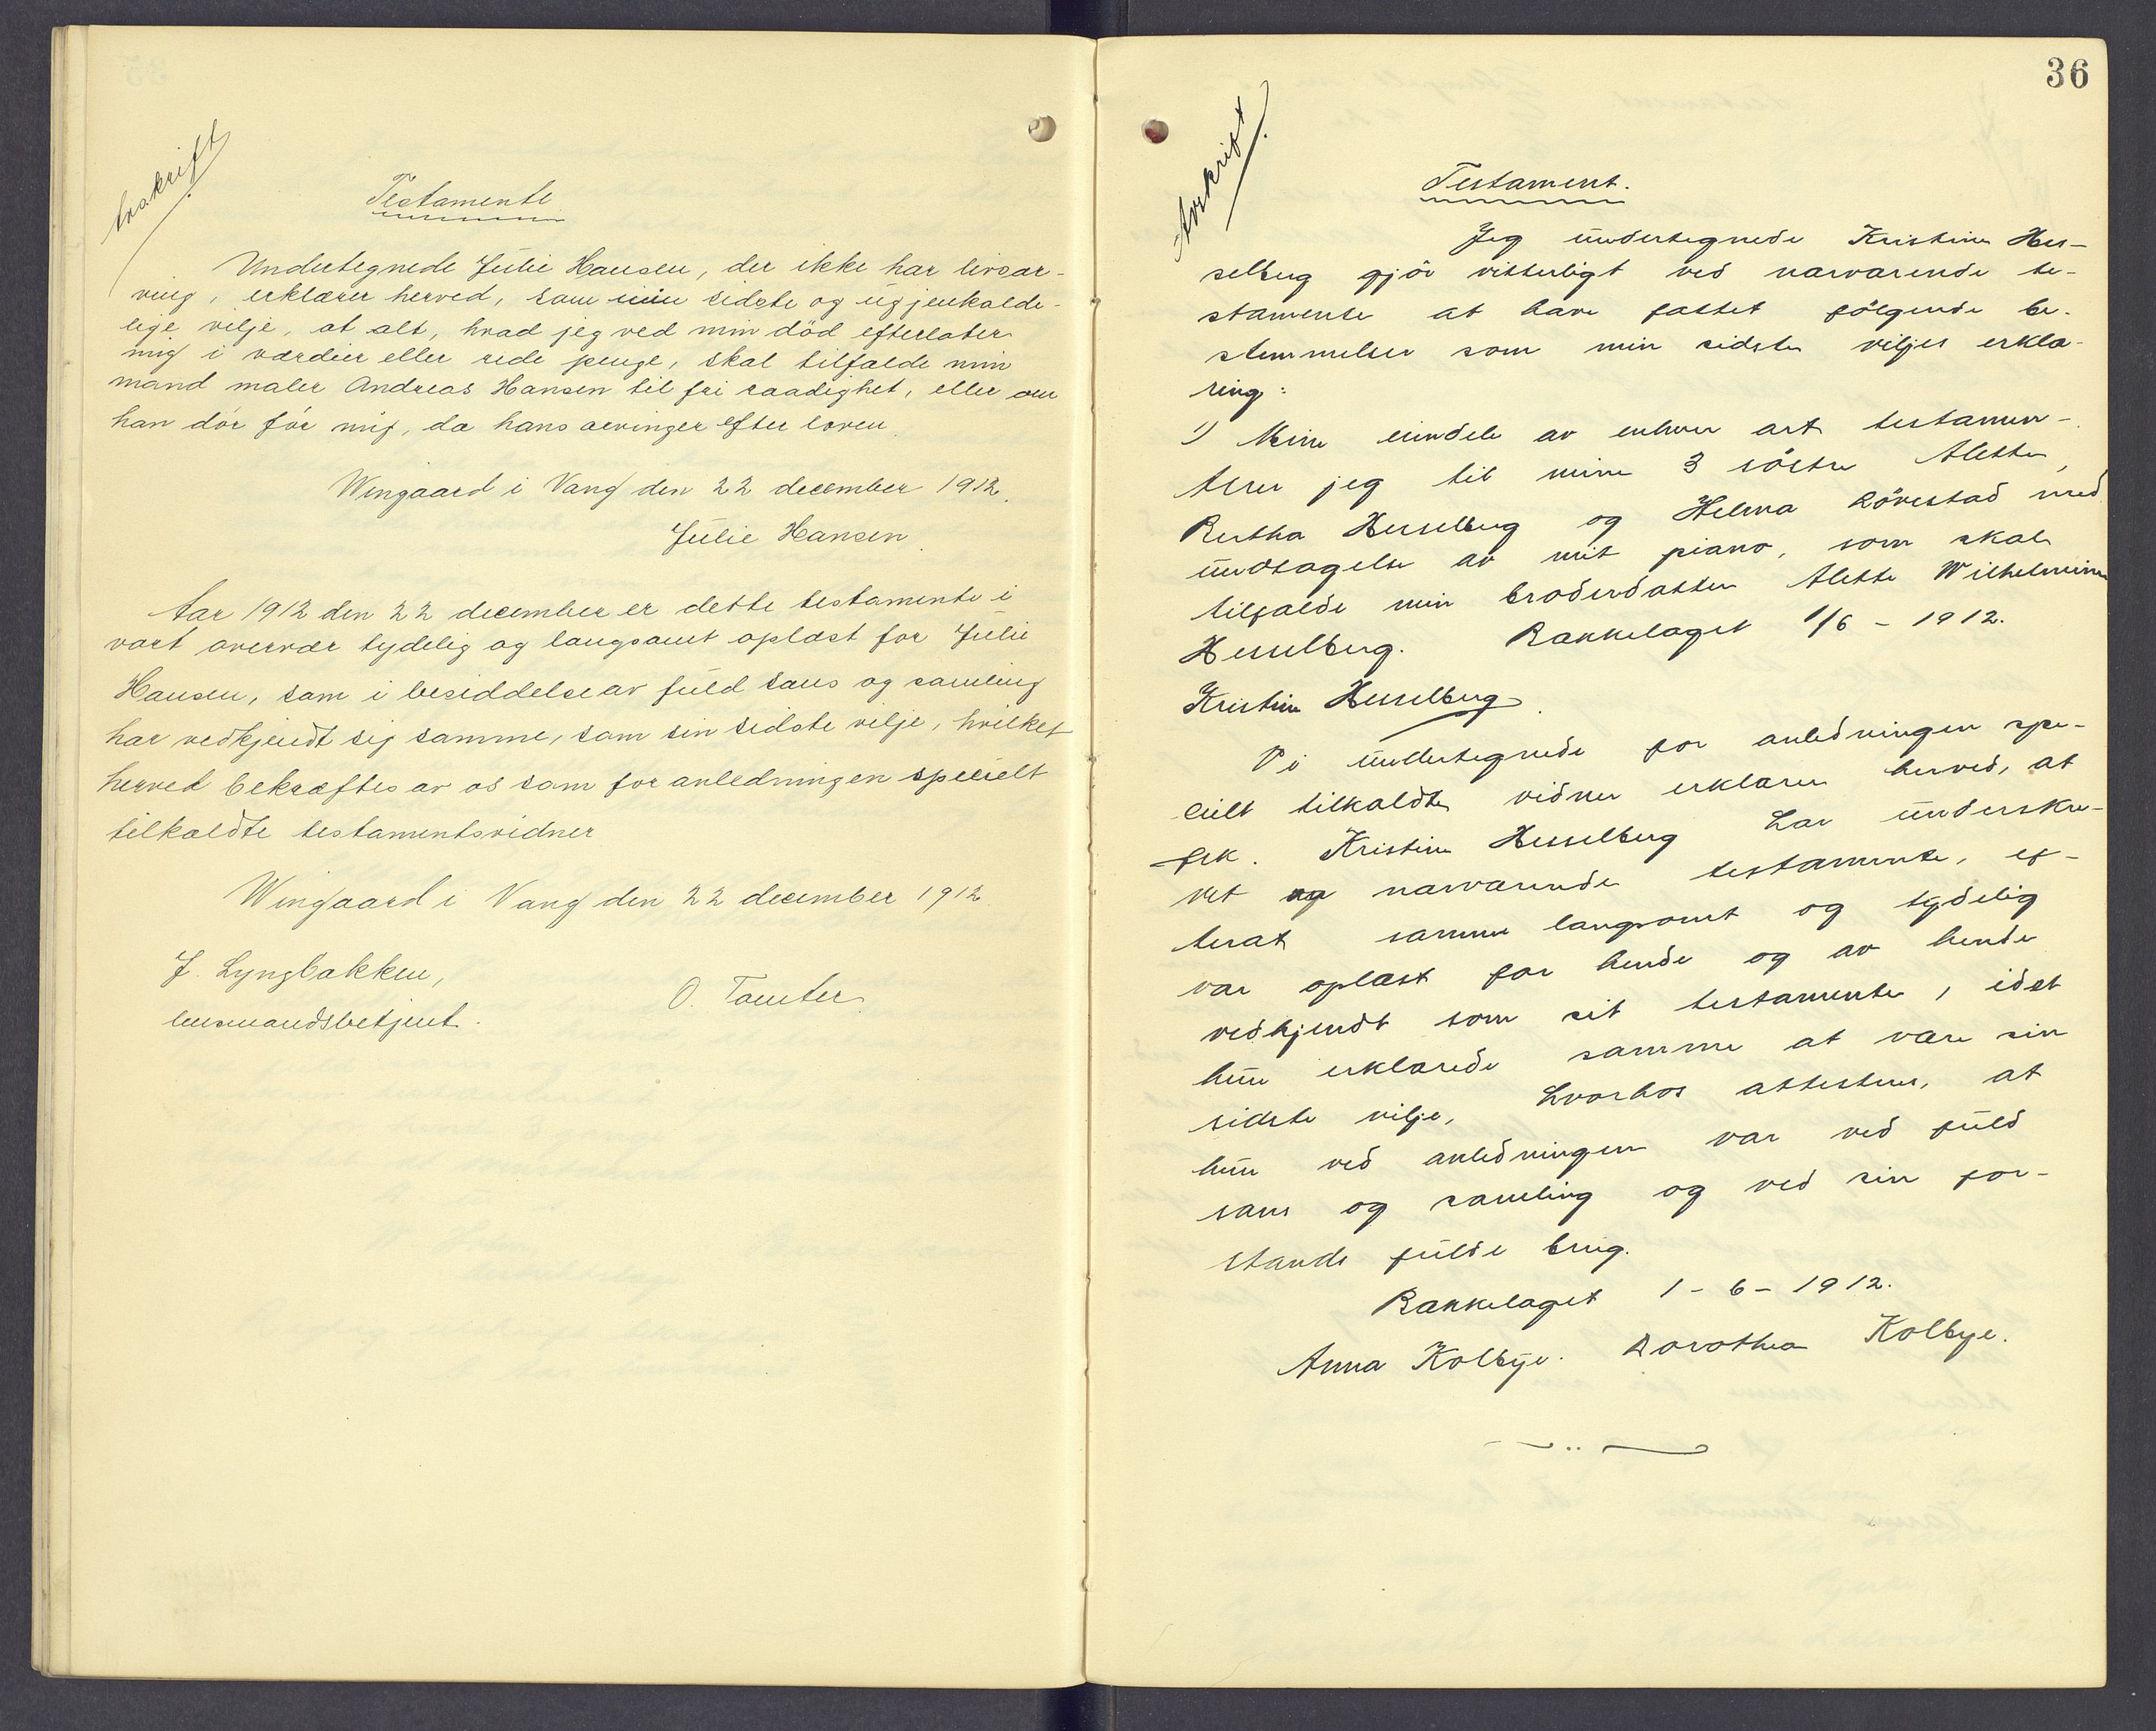 Avskrift
Testamente
Undertegnede Julie Hansen, der ikke har livsar-
ving, erklærer herved, som min sidste og ugjenkalde-
lige vilje, at alt, hvad jeg ved min död efterlater
mig i værdier eller rede penge, skal tilfalde min
mand maler Andreas Hansen til fri raadighet, eller om
han dör för mig, da hans arvinger efter loven.
Wingaard i Vang den 22 december 1912.
Julie Hansen.
Aar 1912 den 22 december er dette testamente i
vort overvær tydelig og langsomt oplæst for Julie
Hansen, som i besiddelse av fuld sans og samling
har vedkjendt sig samme, som sin sidste vilje, hvilket
herved bekræftes av os som for anledningen specielt
tilkaldte testamentsvidner
Wingaard i Vang den 22 december 1912.
J. Lyngbakken,
O. Tomter
lensmandsbetjent.
36
Avskrift
Testament.
Jeg undertegnede Kristine Hes-
selberg gjör vitterligt ved nærværende te-
stamente at have fattet fölgende be-
stemmelser som min sidste viljes erklæ-
ring:
1) Mine eiendele av enhver art testamen-
terer jeg til mine 3 söstre Alette,
Bertha Hesselberg og Helma Lövestad med
undtagelse av mit piano, som skal
tilfalde min broderdatter Alette Wilhelmine
Hesselberg. Bakkelaget 1/6 - 1912.
Kristine Hesselberg.
Vi undertegnede for anledningen spe-
cielt tilkaldte vidner erklærer herved, at
frk. Kristine Hesselberg har underskre-
vet nærværende testamente, ef-
terat samme langsomt og tydelig
var oplæst for hende og av hende
vedkjendt som sit testamente, idet
hun erklærede samme at være sin
sidste vilje, hvorhos attesteres, at
hun ved anledningen var ved fuld
sans og samling og ved sin for-
stands fulde brug.
Bakkelaget 1-6-1912.
Anna Kolbye. Dorothea Kolbye.